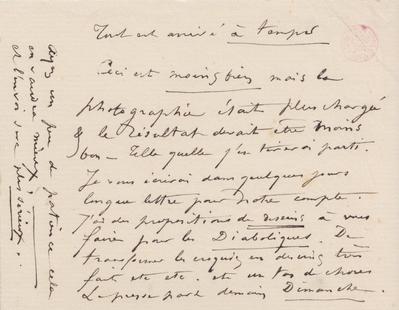 Tout est arrivé à temps
Ceci est moins bien mais la
photographie était plus chargée
& le résultat devait être moins
bon – Telle quelle j'en tirerai parti.
Je vous écrirai dans quelques jours
longue lettre pour notre compte.
J'ai des propositions de dessins à vous
faire pour les Diaboliques. De
transformer les croquis en dessins très
faits etc etc. et un tas de choses
La presse part demain Dimanche.
Ayez un peu de patience cela
en vaudra mieux,
et l'envoi sera plus sérieux.